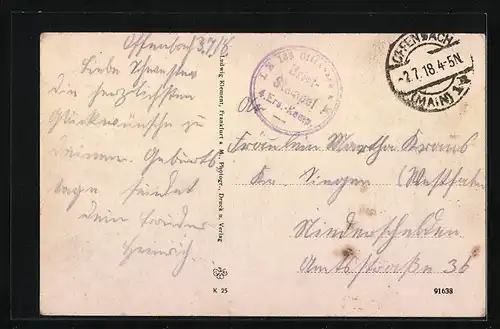 Offenbach 3/7/18
Liebe Schwester
Die herzlichsten
Glückwünsche zu
Deinem Geburts
tage sendet
dein Bruder
Heinrich.
Ludwig Klement, Frankfurt a. M., Photogr., Druck u. Verlag
K 25
Brief-
Stempel
4. Ers.-Komp.
OFFENBACH
-2.7.18 4-5N.
(MAIN) 1
An
Fräulein Martha Kraus
Kr. Siegen (Westfalen
Niederschelden
Amtsstraße 36
91638